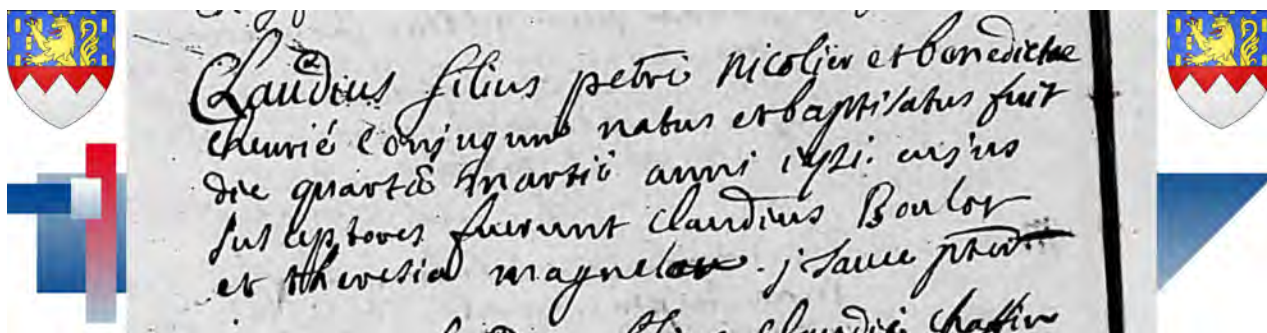 Claudius filius petri nicolier et benedictae
cheurié conjugum natus et baptisatus fuit
die quarta martii anni cujus
susceptores fuerunt claudius Boulot
et theresia j sauce
claudii